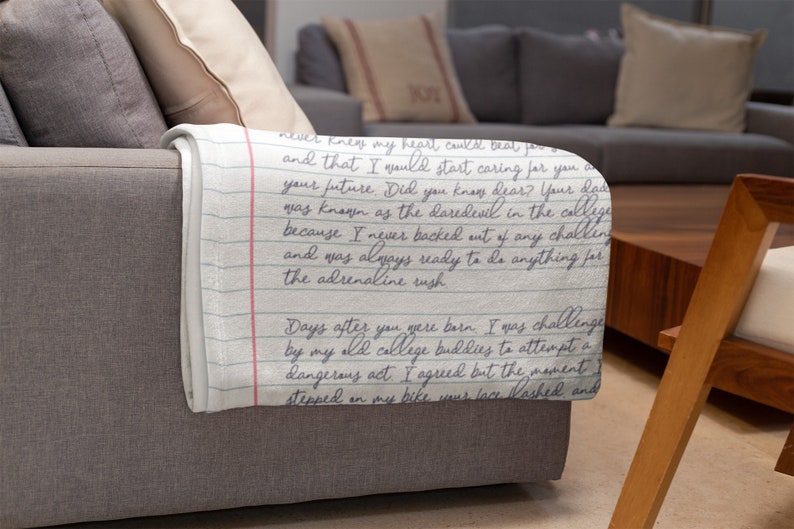 JOY
never knew my heart could beat for
and that I would start caring for you a
your future. Did you know dear? Your dad
was known as the daredevil in the college
because I never backed out of any challeng
and was always ready to do anything for
the adrenaline rush
Days after you were born, I was challenge
by my old college buddies to attempt a
dangerous act. I agreed but the moment I
stepped on my bike, your face flashed and